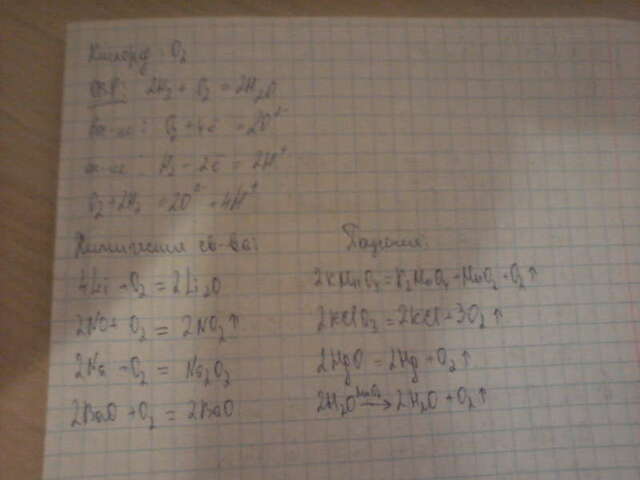 Кислород O₂
ОВР: 2H₂ + O₂ = 2H₂O
O₂ + 4e = 2O²⁻
H₂ - 2e = 2H⁺
O₂ + 2H₂ = 2O²⁻ + 4H⁺
Химические св-ва:
4Li + O₂ = 2Li₂O
2NO + O₂ = 2NO₂↑
2Na + O₂ = Na₂O₂
2BaO + O₂ = 2BaO
Получение:
2KMnO₄ = K₂MnO₄ + MnO₂ + O₂↑
2KClO₃ = 2KCl + 3O₂↑
2HgO = 2Hg + O₂↑
2H₂O MnO₂→ 2H₂O + O₂↑